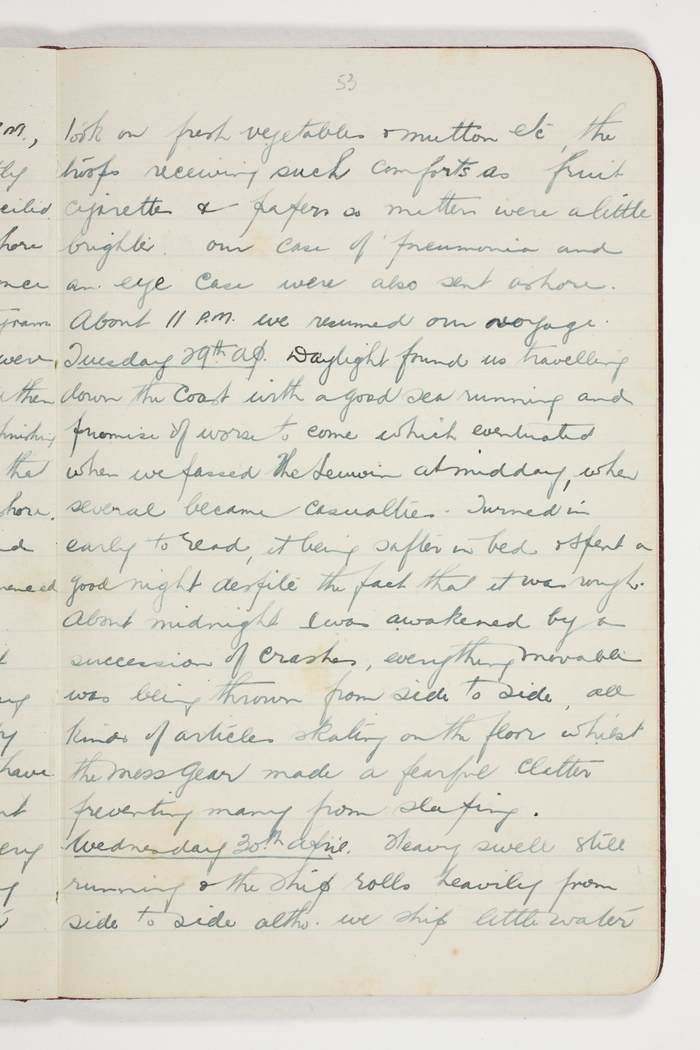 53
took on fresh vegetables & mutton etc, the
troops receiving such comforts as fruit
cigarettes & papers so matters were a little
brighter. our case of pneumonia and
an eye case were also sent ashore.
About 11 P.M. we resumed our voyage.
Tuesday 29th Ap. Daylight found us travelling
down the coast with a good sea running and
promise of worse to come which eventuated
when we passed the Leuwin at midday, when
several became casualties. Turned in
early to read, it being safter in bed & spent a
good night despite the fact that it was rough.
About midnight I was awakened by a
succession of crashes, everything movable
was being thrown from side to side, all
kinds of articles skating on the floor whilst
the Mess Gear made a fearful clatter
preventing many from sleeping.
Wednesday 30th April. Heavy swell still
running & the ship rolls heavily from
side to side altho. we ship little water